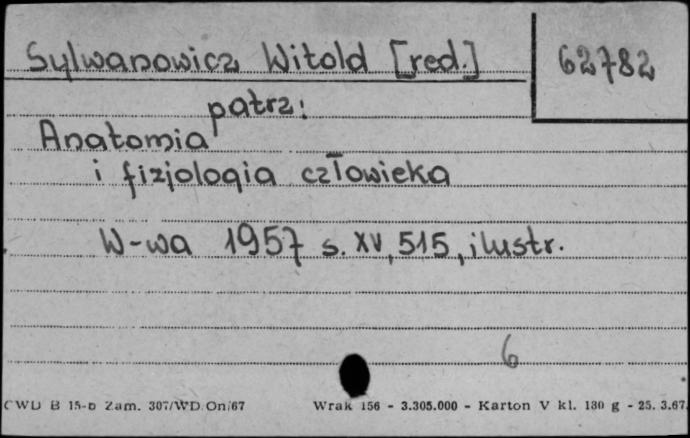 Sylwanowicz Witold [red.] 62782
patrz:
Anatomia
i fizjologia człowieka
W-wa 1957 s. XV, 515, ilustr.
6
CWD B 15-b Zam. 307/WD/On/67 Wrak 156 - 3.305.000 - Karton V kl. 180 g - 25. 3.67.